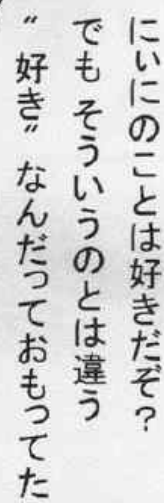 にいにのことは好きだぞ？
でも そういうのとは違う
"好き" なんだっておもってた